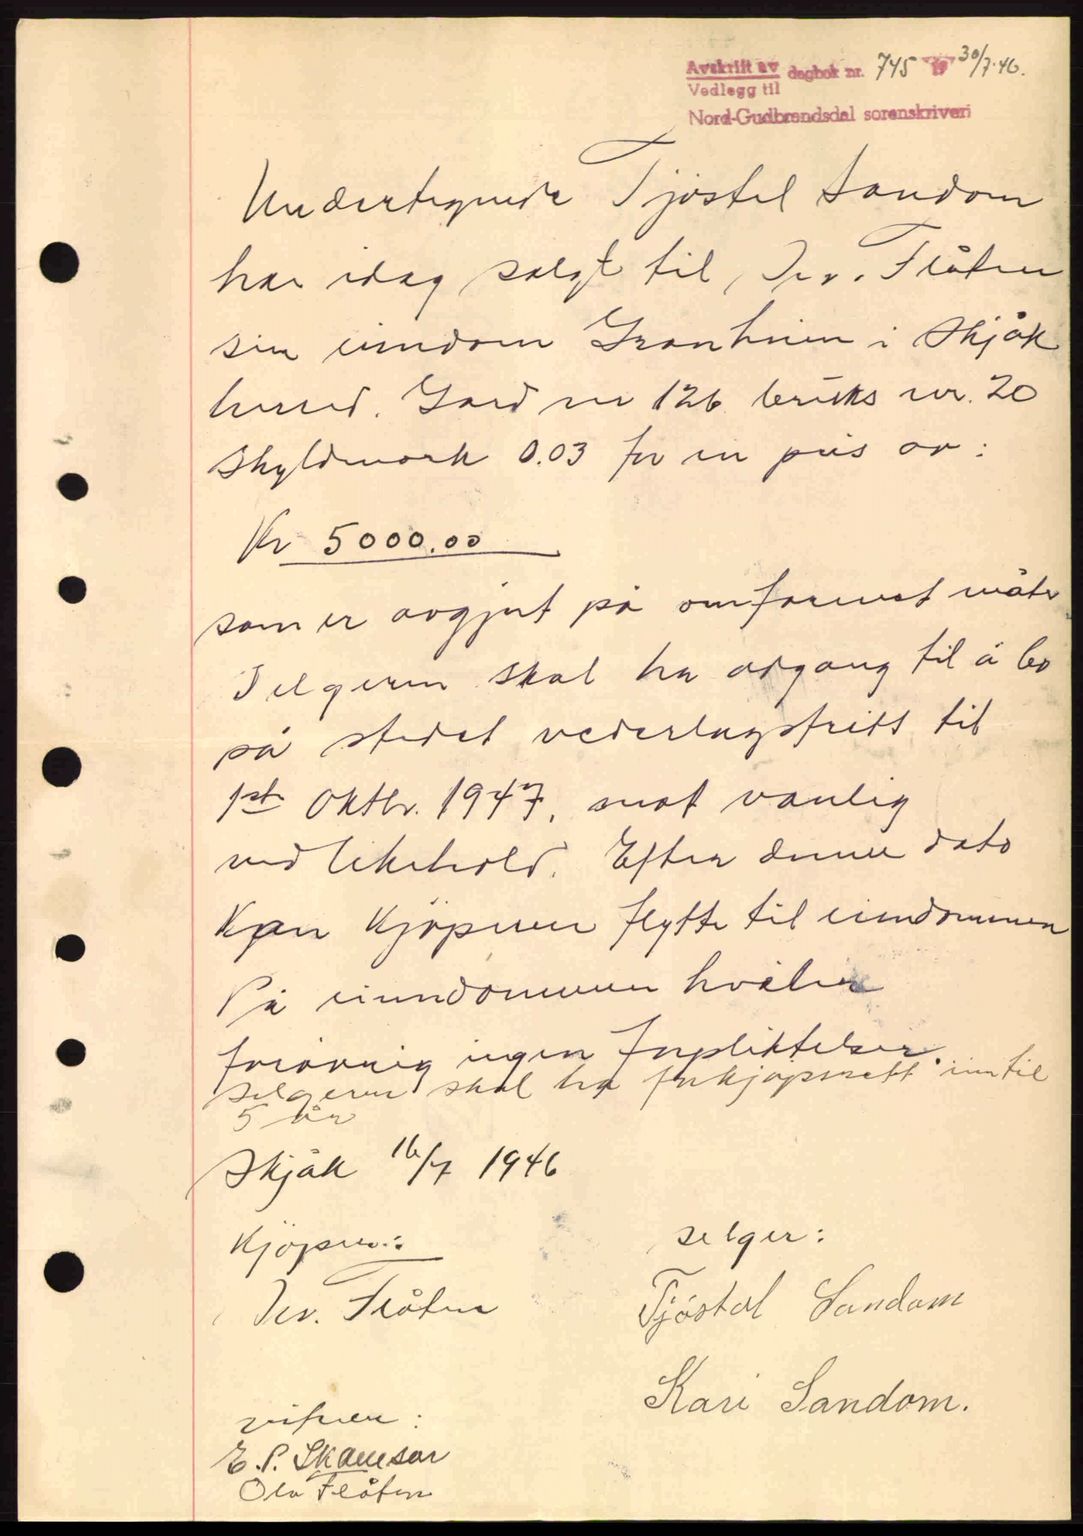 Avskrift av dagbok nr. 745 19 30/7-46.
Vedlegg til
Nord-Gudbrandsdal sorenskriveri
Undertegnede Tjøstel Sandom
har idag solgt til Iv. Flåten
sin eiendom Granheim i Skjåk
herred. Gard nr 126 bruks nr. 20
Skyldmark 0.03 for en pris av:
Kr 5000.00
som er avgjort på omforenet måte
Selgeren skal ha adgang til å bo
på stedet vederlagsfritt til
1ste Oktbr. 1947, mot vanlig
vedlikehold. Efter denne dato
kan kjöperen flytte til eiendommen
På eiendommen hviler
forövrig ingen forpliktelser.
selgeren skal ha forkjöpsrett inntil
5 år
Skjåk 16/7 1946
Kjöper:
selger:
Iv. Flåten
Tjöstol Sandom
Kari Sandom.
vitner:
E. P. Skamsar
Ola Flåten